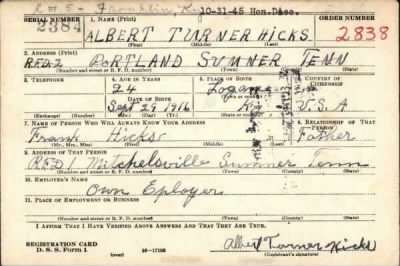 R#5 - Franklin, Ky 10-31-45 Hon.Disc.
SERIAL NUMBER 1. NAME (Print) ORDER NUMBER
2384 ALBERT TURNER HICKS 2838
(First) (Middle) (Last)
2. ADDRESS (Print)
R.F.D. 2 PORTLAND SUMNER TENN
(Number and street or R. F. D. number) (Town) (County) (State)
3. TELEPHONE 4. AGE IN YEARS 5. PLACE OF BIRTH 6. COUNTRY OF CITIZENSHIP
24 Logan
DATE OF BIRTH (Town or county)
Sept 29 1916 Ky U.S.A
(Exchange) (Number) (Mo.) (Day) (Yr.) (State or country)
7. NAME OF PERSON WHO WILL ALWAYS KNOW YOUR ADDRESS 8. RELATIONSHIP OF THAT PERSON
Frank Hicks Father
(Mr., Mrs., Miss) (First) (Middle) (Last)
9. ADDRESS OF THAT PERSON
R.F.D. 1 Mitchelsville Sumner Tenn
(Number and street or R. F. D. number) (Town) (County) (State)
10. EMPLOYER'S NAME
Own Eployer
11. PLACE OF EMPLOYMENT OR BUSINESS
(Number and street or R. F. D. number) (Town) (County) (State)
I AFFIRM THAT I HAVE VERIFIED ABOVE ANSWERS AND THAT THEY ARE TRUE.
REGISTRATION CARD Albert Turner Hicks
D. S. S. Form 1 (over) 16-17105 (Registrant's signature)